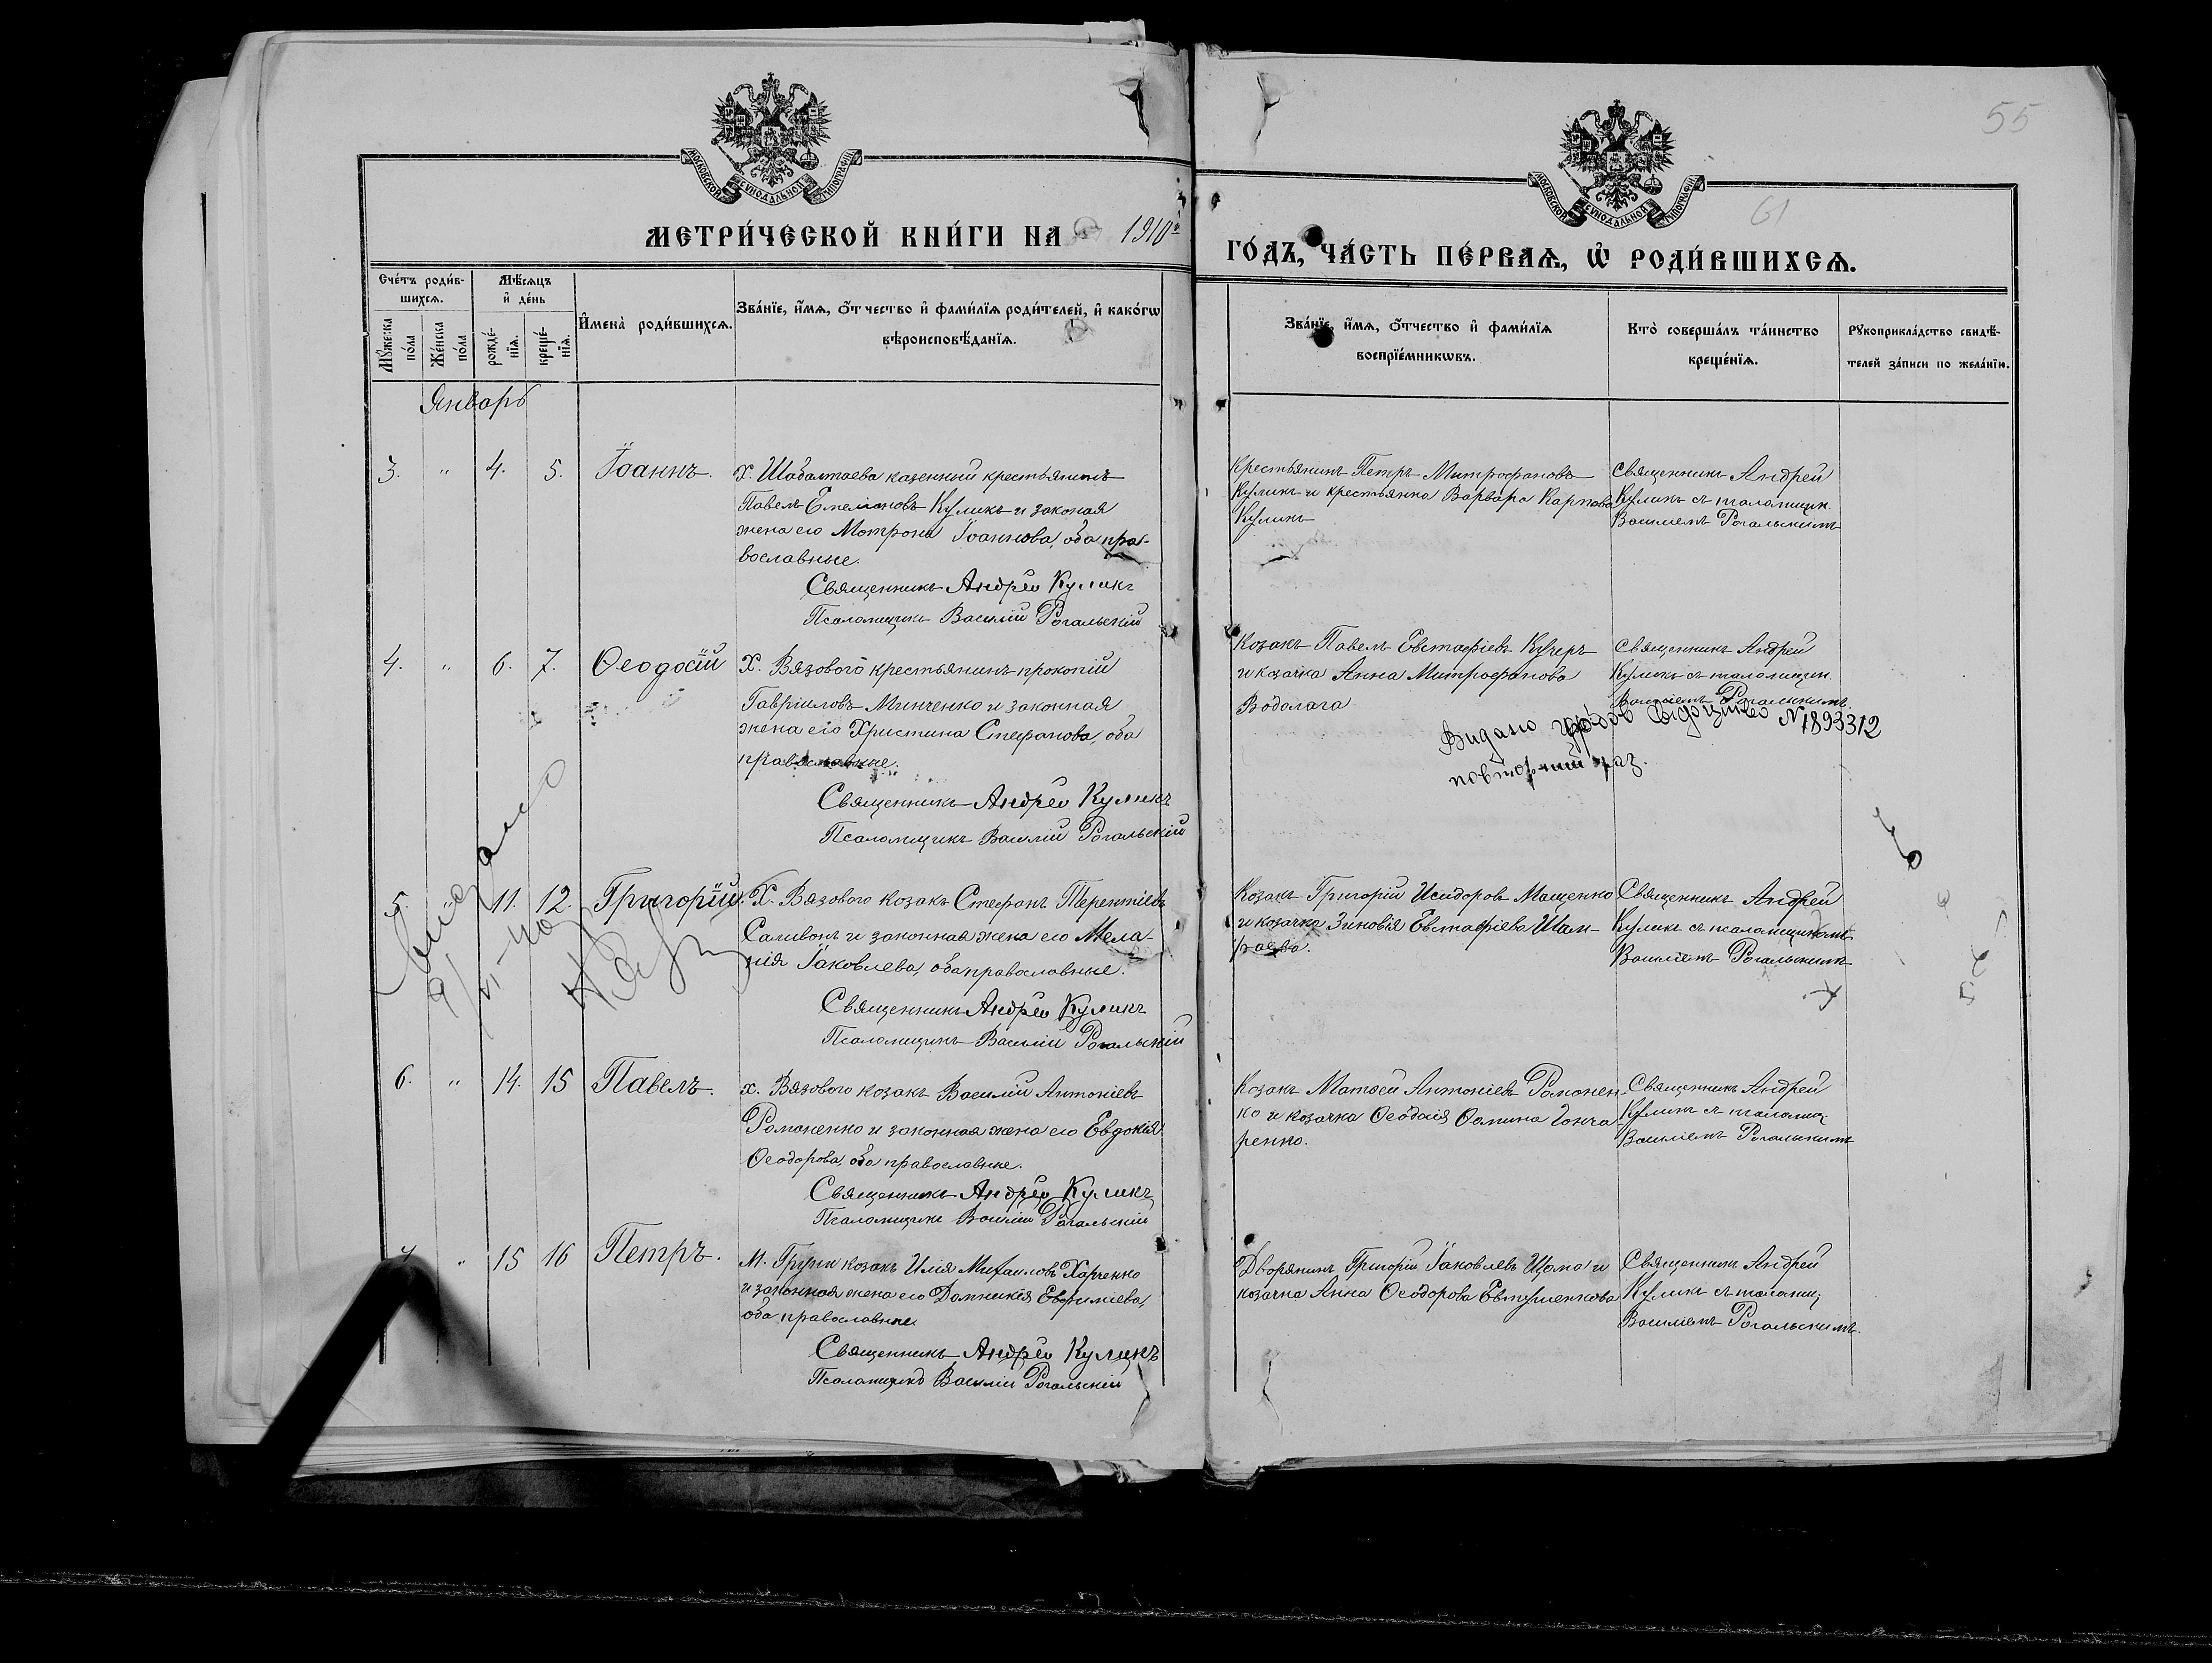 55
61
МОСКОВСКОЙ СѴНОДАЛЬНОЙ ТИПОГРАФІИ
МОСКОВСКОЙ СѴНОДАЛЬНОЙ ТИПОГРАФІИ
МЕТРИ́ЧЕСКОЙ КНИ́ГИ НА 1910
ГО́ДЪ, ЧА́СТЬ ПЕ́РВАѦ, Ѡ҆ РОДИ́ВШИХСѦ.
Сче́тъ роди́в-
шихсѧ.
Мѣ́сѧцъ
и҆ де́нь
Мꙋ́жеска
по́ла
Же́нска
по́ла
рожде́-
нїѧ.
креще́-
нїѧ.
И҆мена̀ роди́вшихсѧ.
Зва́нїе, и҆́мѧ, ѻ҆́тчество и҆ фами́лїѧ роди́телей, и҆ како́гѡ
вѣроисповѣ́данїѧ.
Зва́нїе, и҆́мѧ, ѻ҆́тчество и҆ фами́лїѧ
воспрїе́мникѡвъ.
Кто̀ соверша́лъ та́инство
креще́нїѧ.
Рꙋкоприкла́дство свидѣ́-
телей за́писи по жела́нїю.
Январь
3. " 4. 5. Іоаннъ.
Х. Шабалтаева казенный крестьянинъ
Павелъ Емеліановъ Куликъ и законая
жена его Мотрона Іоаннова, оба пра-
вославные.
Священникъ Андрей Куликъ
Псаломщикъ Василій Рогальскій
Крестьянинъ Петръ Митрофановъ
Куликъ и крестьянка Варвара Карпова
Куликъ
Священникъ Андрей
Куликъ съ псаломщик.
Василіемъ Рогальскимъ
4. " 6. 7. Ѳеодосій
Х. Вязового крестьянинъ Прокопій
Гавріиловъ Минченко и законная
жена его Христина Стефанова, оба
православные.
Священникъ Андрей Куликъ
Псаломщикъ Василій Рогальскій
Козакъ Павелъ Евстафіевъ Кучеръ
и козачка Анна Митрофанова
Водолага
Священникъ Андрей
Куликъ съ псаломщик.
Василіемъ Рогальскимъ
Видано N 1893312
повторний раз.
Видано
5. " 11. 12. Григорій.
Х. Вязового козакъ Стефанъ Терентіевъ
Саливонъ и законная жена его Мела-
нія Іаковлева, оба православные.
Священникъ Андрей Куликъ
Псаломщикъ Василій Рогальскій
Козакъ Григорій Исидоровъ Мащенко
и козачка Зиновія Евстафіева Шам-
раева.
Священникъ Андрей
Куликъ съ псаломщикомъ
Василіемъ Рогальскимъ
6. " 14. 15 Павелъ.
х. Вязового козакъ Василій Антоніевъ
Романенко и законная жена его Евдокія
Ѳеодорова, оба православные.
Священникъ Андрей Куликъ
Псаломщикъ Василій Рогальскій
Козакъ Матѳей Антоніевъ Романен-
ко и козачка Ѳеодосія Ѳомина Гонча-
ренко.
Священникъ Андрей
Куликъ съ псаломщ.
Василіемъ Рогальскимъ
7 " 15 16 Петръ.
М. Груни козакъ Илія Михаиловъ Харченко
и законная жена его Домникія Евфиміева,
оба православные.
Священникъ Андрей Куликъ
Псаломщикъ Василій Рогальскій
Дворянинъ Григорій Іаковлевъ Щома и
козачка Анна Ѳеодорова Евтушенкова
Священникъ Андрей
Куликъ съ псаломщ.
Василіемъ Рогальскимъ.